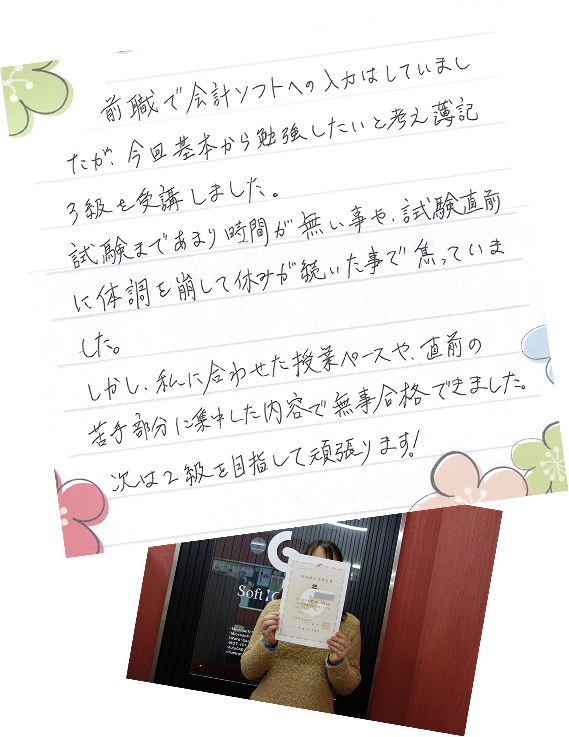 前職で会計ソフトへの入力はしていまし
たが、今回基本から勉強したいと考え薄記
3級を受講しました。
試験まであまり時間が無い事や、試験直前
に体調を崩して休みが続いた事で焦っていま
した。
しかし、私に合わせた授業ペースや、直前の
苦手部分に集中した内容で無事合格できました。
次は2級を目指して頑張ります!
Soft